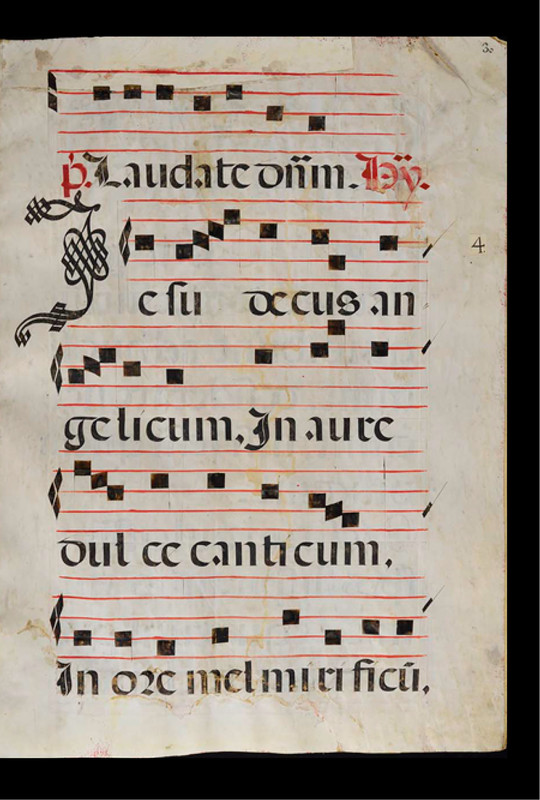 30
p̃. Laudate dñm. Hỹ.
4
Iesu decus an
gelicum, In aure
dul ce canticum,
In ore mel miri ficũ,